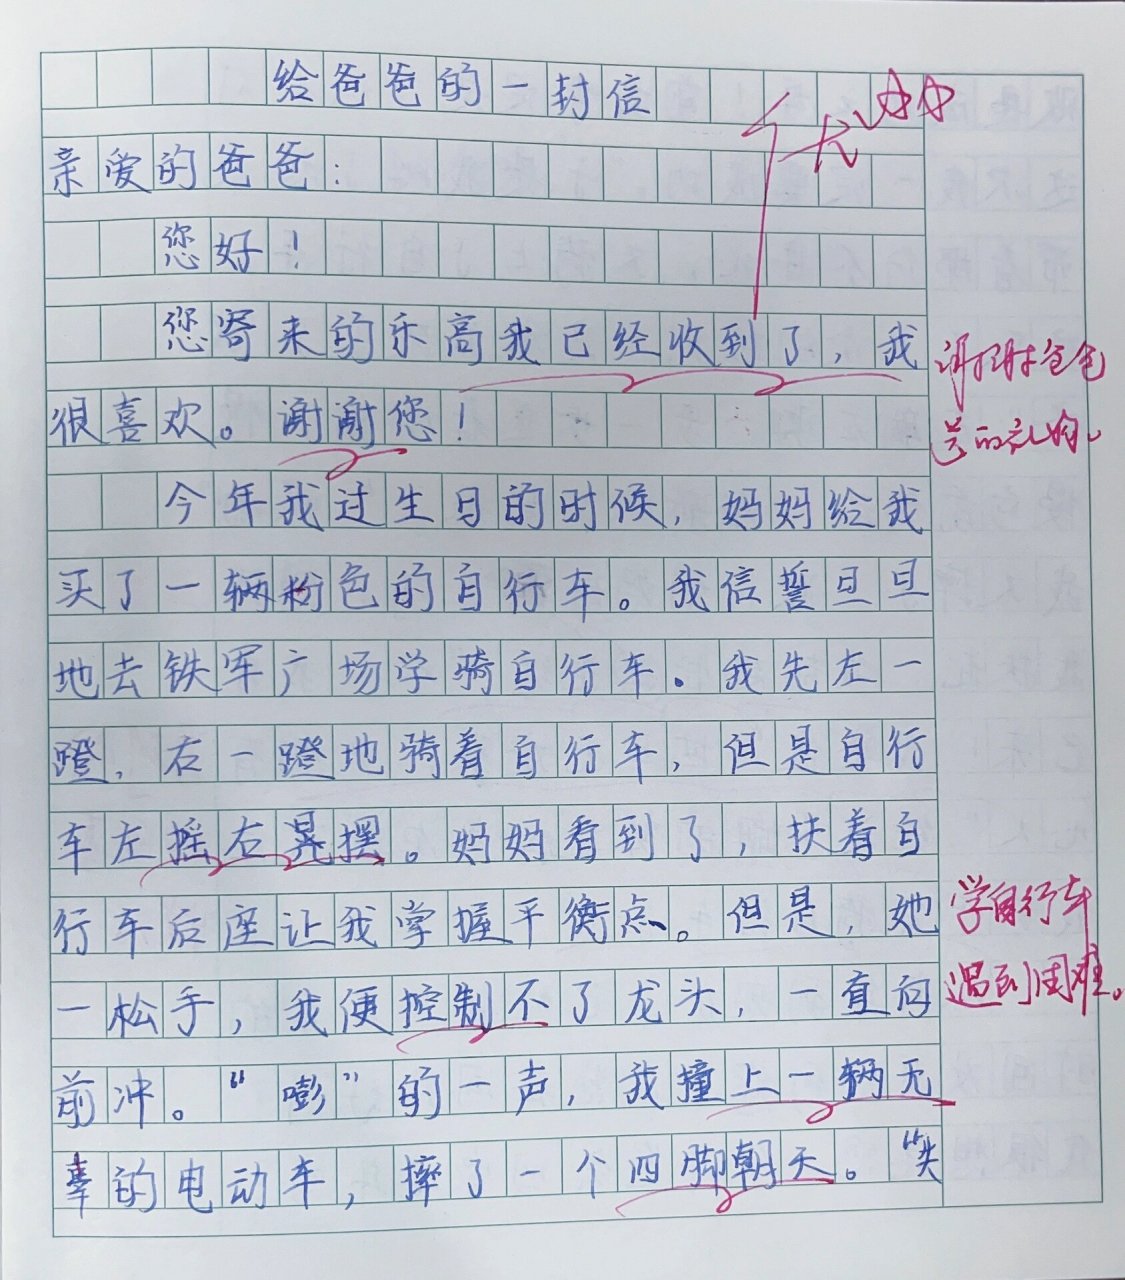 给爸爸的一封信
优
亲爱的爸爸：
您好！
您寄来的乐高我已经收到了，我
很喜欢。谢谢您！
谢谢爸爸
送的礼物。
今年我过生日的时候，妈妈给我
买了一辆粉色的自行车。我信誓旦旦
地去铁军广场学骑自行车。我先左一
蹬，右一蹬地骑着自行车，但是自行
车左摇右晃摆。妈妈看到了，扶着自
行车后座让我掌握平衡点。但是，她
一松手，我便控制不了龙头，一直向
学自行车
遇到困难。
前冲。“嘭”的一声，我撞上一辆无
辜的电动车，摔了一个四脚朝天。“失